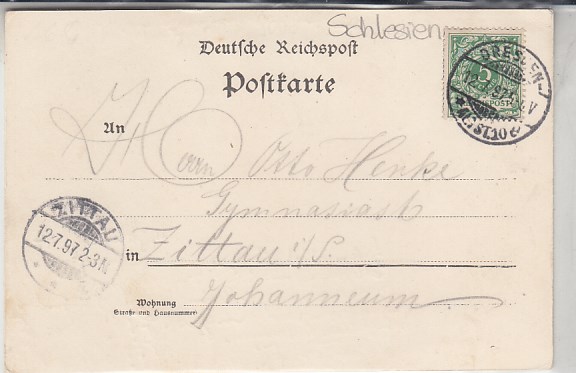 Schlesien
Deutsche Reichspost
Postkarte
DRESDEN-
5
12.7.97 V
ST.10 e
An
Herrn Otto Henke
Gymnasiast
ZITTAU
12.7.97 2-3N.
in Zittau i/S.
Johanneum
Wohnung
Straße und Hausnummer